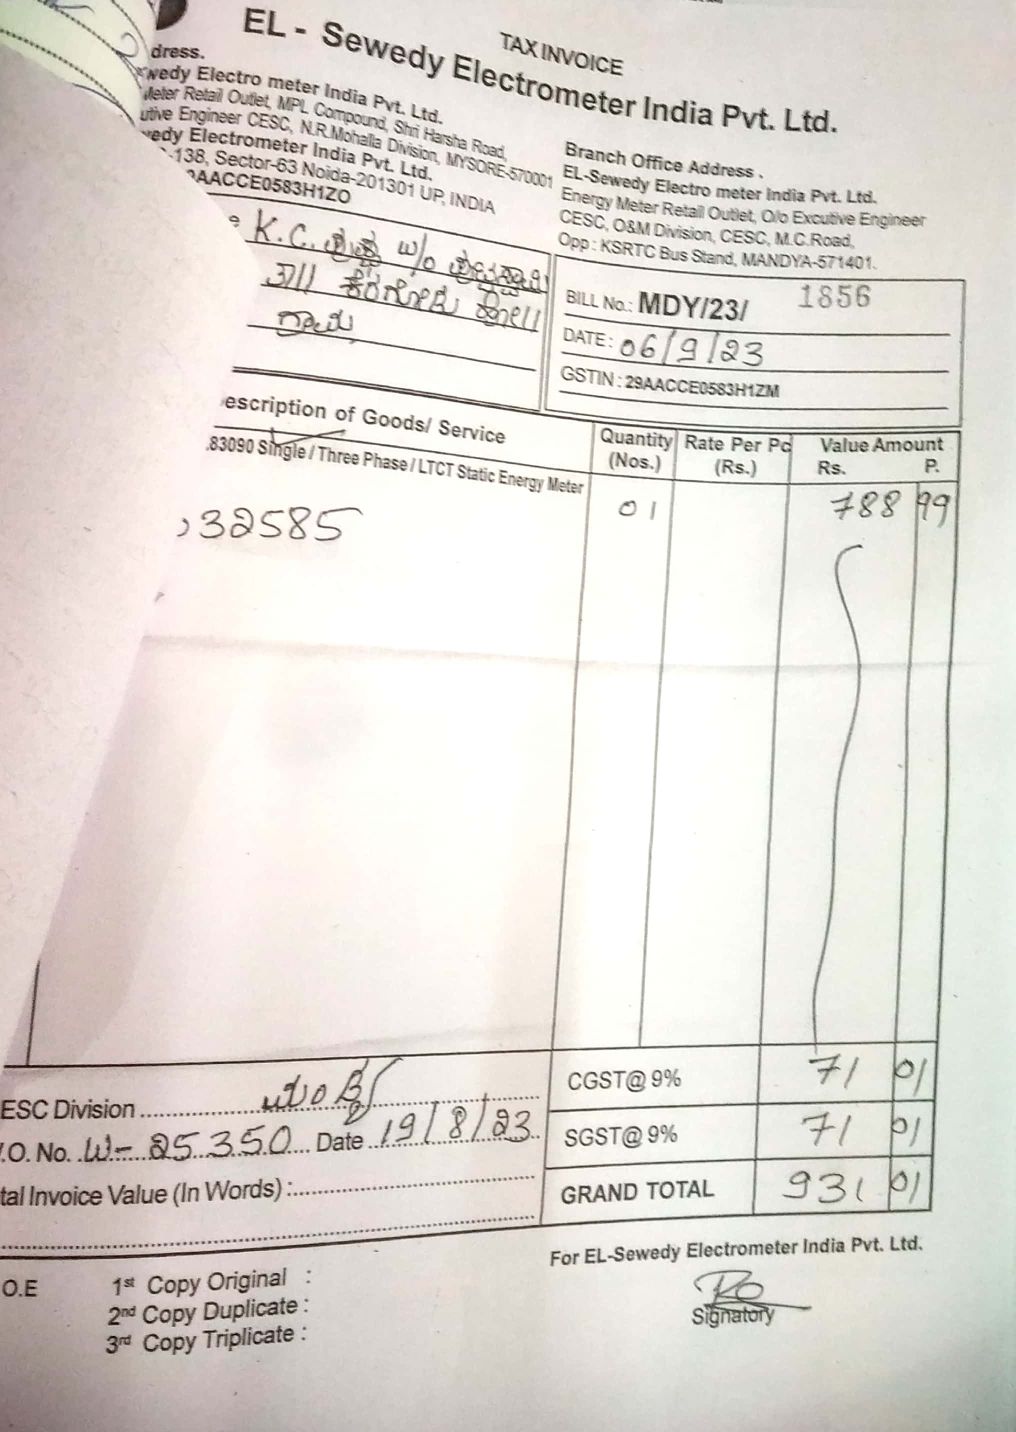 TAX INVOICE
EL - Sewedy Electrometer India Pvt. Ltd.
dress.
wedy Electro meter India Pvt. Ltd.
Meter Retail Outlet, MPL Compound, Shri Harsha Road,
utive Engineer CESC, N.R.Mohalla Division, MYSORE-570001
wedy Electrometer India Pvt. Ltd.
-138, Sector-63 Noida-201301 UP, INDIA
9AACCE0583H1ZO
Branch Office Address .
EL-Sewedy Electro meter India Pvt. Ltd.
Energy Meter Retail Outlet, O/o Excutive Engineer
CESC, O&M Division, CESC, M.C.Road,
Opp : KSRTC Bus Stand, MANDYA-571401.
K.C. w/o
BILL No.: MDY/23/ 1856
DATE : 06/9/23
GSTIN : 29AACCE0583H1ZM
escription of Goods/ Service Quantity (Nos.) Rate Per Pc (Rs.) Value Amount Rs. P.
.83090 Single / Three Phase / LTCT Static Energy Meter
32585 01 788 99
CGST@ 9% 71 01
ESC Division
SGST@ 9% 71 01
.O. No. W- 25350 Date 19/8/23
GRAND TOTAL 931 01
tal Invoice Value (In Words) :
For EL-Sewedy Electrometer India Pvt. Ltd.
O.E 1st Copy Original :
2nd Copy Duplicate :
3rd Copy Triplicate :
Signatory